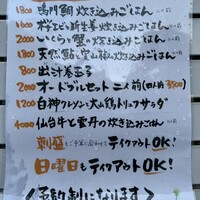 1800 鳴門鯛炊き込みごはん
1600 桜えびと新生姜炊き込みごはん
2000 いくらと蟹の炊き込みごはん
1800 天然鮎と 炊き込みごはん
800 出汁巻き玉子
2000 オードブルセット 二人前(四人前3500)
1200 白神クレソンと大山鶏トリュフサラダ
4000 仙台牛と雲丹の炊き込みごはん
刺盛 もご予算に合わせてテイクアウトOK!
日曜日もテイクアウトOK!
〈予約制になります〉